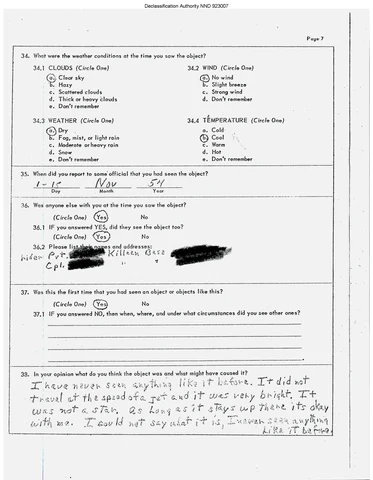 Declassification Authority NND 923007
Page 7
34. What were the weather conditions at the time you saw the object?
34.1 CLOUDS (Circle One) 34.2 WIND (Circle One)
a. Clear sky a. No wind
b. Hazy b. Slight breeze
c. Scattered clouds c. Strong wind
d. Thick or heavy clouds d. Don't remember
e. Don't remember
34.3 WEATHER (Circle One) 34.4 TEMPERATURE (Circle One)
a. Dry a. Cold
b. Fog, mist, or light rain b. Cool
c. Moderate or heavy rain c. Warm
d. Snow d. Hot
e. Don't remember e. Don't remember
35. When did you report to some official that you had seen the object?
Nov 54
Day Month Year
36. Was anyone else with you at the time you saw the object?
(Circle One) Yes No
36.1 IF you answered YES, did they see the object too?
(Circle One) Yes No
36.2 Please list their names and addresses:
Pvt. Killeen Base
Cpl. " "
37. Was this the first time that you had seen an object or objects like this?
(Circle One) Yes No
37.1 IF you answered NO, then when, where, and under what circumstances did you see other ones?
38. In your opinion what do you think the object was and what might have caused it?
I have never seen anything like it before. It did not
travel at the speed of a jet and it was very bright. It
was not a star. as long as it stays up there its okay
with me. I could not say what it is, I never seen anything
like it before.